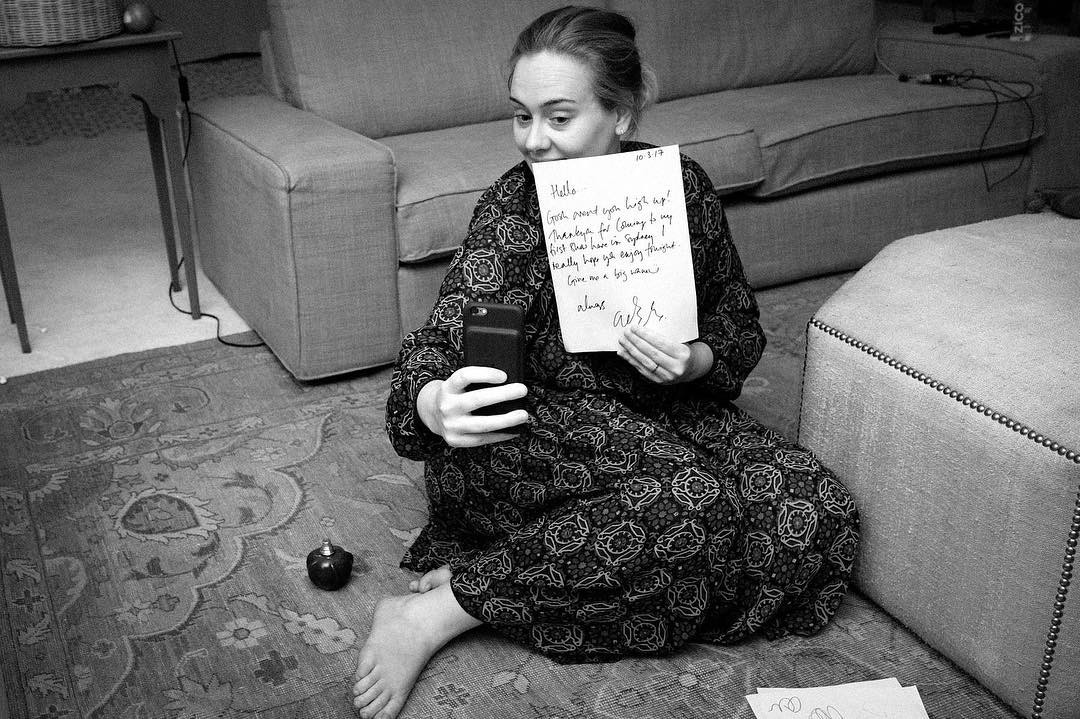 10.3.17
Hello
Gosh around you high up!
Thankyou for coming to my
first show here in Sydney I
really hope you enjoy tonight.
Give me a big wave
always
ZICO